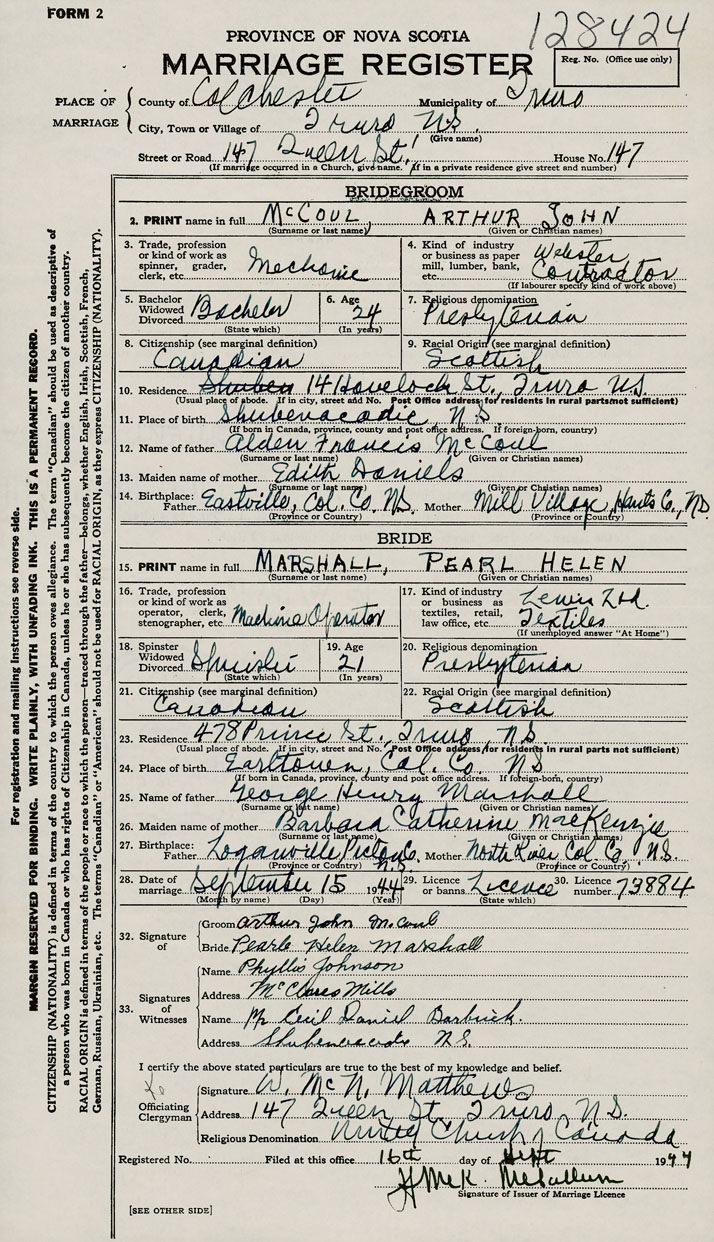 FORM 2
128424
PROVINCE OF NOVA SCOTIA
MARRIAGE REGISTER
Reg. No. (Office use only)
PLACE OF MARRIAGE
County of Colchester Municipality of Truro
City, Town or Village of Truro N.S.
(Give name)
Street or Road 147 Queen St. House No. 147
(If marriage occurred in a Church, give name. If in a private residence give street and number)
BRIDEGROOM
2. PRINT name in full McCOUL, ARTHUR JOHN
(Surname or last name) (Given or Christian names)
3. Trade, profession or kind of work as spinner, grader, clerk, etc. Mechanic
4. Kind of industry or business as paper mill, lumber, bank, etc. Webster Contractor
(If labourer specify kind of work above)
5. Bachelor Widowed Divorced Bachelor (State which)
6. Age 24 (In years)
7. Religious denomination Presbyterian
8. Citizenship (see marginal definition) Canadian
9. Racial Origin (see marginal definition) Scottish
10. Residence Shuben 14 Havelock St., Truro N.S.
(Usual place of abode. If in city, street and No. Post Office address for residents in rural parts not sufficient)
11. Place of birth Shubenacadie N.S
(If born in Canada, province, county and post office address. If foreign-born, country)
12. Name of father Alden Francis McCoul
(Surname or last name) (Given or Christian names)
13. Maiden name of mother Edith Daniels
(Surname or last name) (Given or Christian names)
14. Birthplace: Father Eastville, Col. Co. N.S. Mother Mill Village, Hants Co., N.S
(Province or Country) (Province or Country)
BRIDE
15. PRINT name in full MARSHALL, PEARL HELEN
(Surname or last name) (Given or Christian names)
16. Trade, profession or kind of work as operator, clerk, stenographer, etc. Machine Operator
17. Kind of industry or business as textiles, retail, law office, etc. Lewis Ltd. Textiles
(If unemployed answer "At Home")
18. Spinster Widowed Divorced Spinster (State which)
19. Age 21 (In years)
20. Religious denomination Presbyterian
21. Citizenship (see marginal definition) Canadian
22. Racial Origin (see marginal definition) Scottish
23. Residence 478 Prince St., Truro, N.S.
(Usual place of abode. If in city, street and No. Post Office address for residents in rural parts not sufficient)
24. Place of birth Earltown, Col. Co. N.S
(If born in Canada, province, county and post office address. If foreign-born, country)
25. Name of father George Henry Marshall
(Surname or last name) (Given or Christian names)
26. Maiden name of mother Barbara Catherine MacKenzie
(Surname or last name) (Given or Christian names)
27. Birthplace: Father Loganville, Pictou Co. N.S. Mother North River Col. Co., N.S.
(Province or Country) (Province or Country)
28. Date of marriage September 15 1944
(Month by name) (Day) (Year)
29. Licence or banns Licence (State which)
30. Licence number 73884
32. Signature of
Groom Arthur John McCoul
Bride Pearle Helen Marshall
33. Signatures of Witnesses
Name Phyllis Johnson
Address McClures Mills
Name Mr Cecil Daniel Barbrick.
Address Shubenacadie N.S.
I certify the above stated particulars are true to the best of my knowledge and belief.
Officiating Clergyman
Signature W. McN. Matthews
Address 147 Queen St. Truro, N.S.
Religious Denomination United Church of Canada
Registered No. Filed at this office 16th day of Sept 1944
H McK. McCallum
Signature of Issuer of Marriage Licence
[SEE OTHER SIDE]
For registration and mailing instructions see reverse side.
MARGIN RESERVED FOR BINDING. WRITE PLAINLY, WITH UNFADING INK. THIS IS A PERMANENT RECORD.
CITIZENSHIP (NATIONALITY) is defined in terms of the country to which the person owes allegiance. The term "Canadian" should be used as descriptive of
a person who was born in Canada or who has rights of Citizenship in Canada, unless he or she has subsequently become the citizen of another country.
RACIAL ORIGIN is defined in terms of the people or race to which the person—traced through the father—belongs, whether English, Irish, Scottish, French,
German, Russian, Ukrainian, etc. The terms "Canadian" or "American" should not be used for RACIAL ORIGIN, as they express CITIZENSHIP (NATIONALITY).